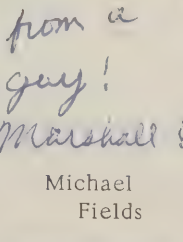 from a
guy!
Marshall &
Michael
Fields